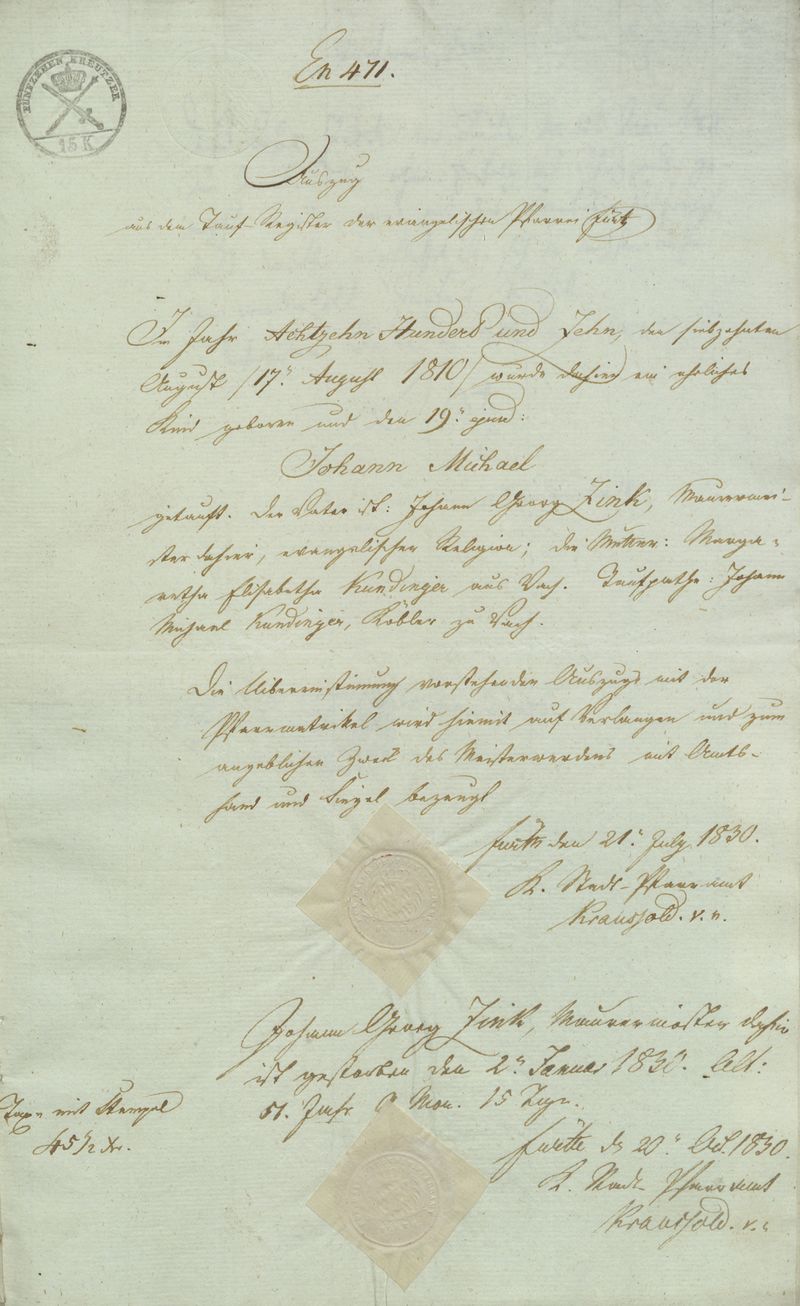 FÜNFZEHEN KREUTZER
15 K
En 471.
Auszug
aus dem Tauf-Register der evangelischen Pfarrei Fürth
Im Jahr Achtzehn Hundert und Zehn, den siebzehnten
August /17n August 1810/ wurde dahier ein eheliches
Kind geboren und den 19n ejusd:
Johann Michael
getauft. Der Vater ist: Johann Georg Zink, Maurermei-
ster dahier, evangelischer Religion; die Mutter: Marga-
retha Elisabetha Kundinger aus Vach. Taufpathe: Johann
Michael Kundinger, Köbler zu Vach.
Die Uibereinstimmung vorstehenden Auszugs mit der
Pfarrmatrikel wird hiemit auf Verlangen und zum
angeblichen Zweck des Meisterwerdens mit Amts-
hand und Siegel bezeugt
Fürth den 21n July 1830.
K. Stadt-Pfarramt
Kraussold. v. n.
Johann Georg Zink, Maurermeister dahier
ist gestorben den 2n Januar 1830. Alt:
51. Jahr Mon. 15 Tage.
Taxe mit Stempel
45 1/2 xr.
Fürth d 20n Oct. 1830.
K. Stadt-Pfarramt
Kraussold. v. n.